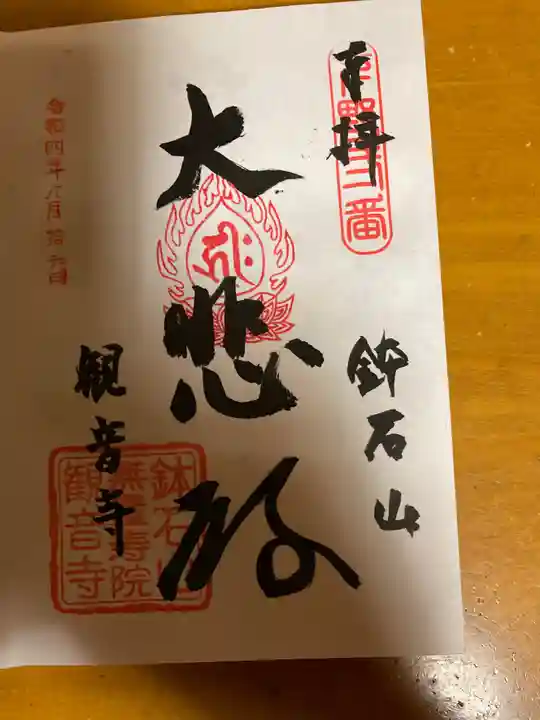 奉拝
下野第二番
鉢石山
大悲殿
観音寺
鉢石山
無量寿院
観音寺
令和四年八月拾